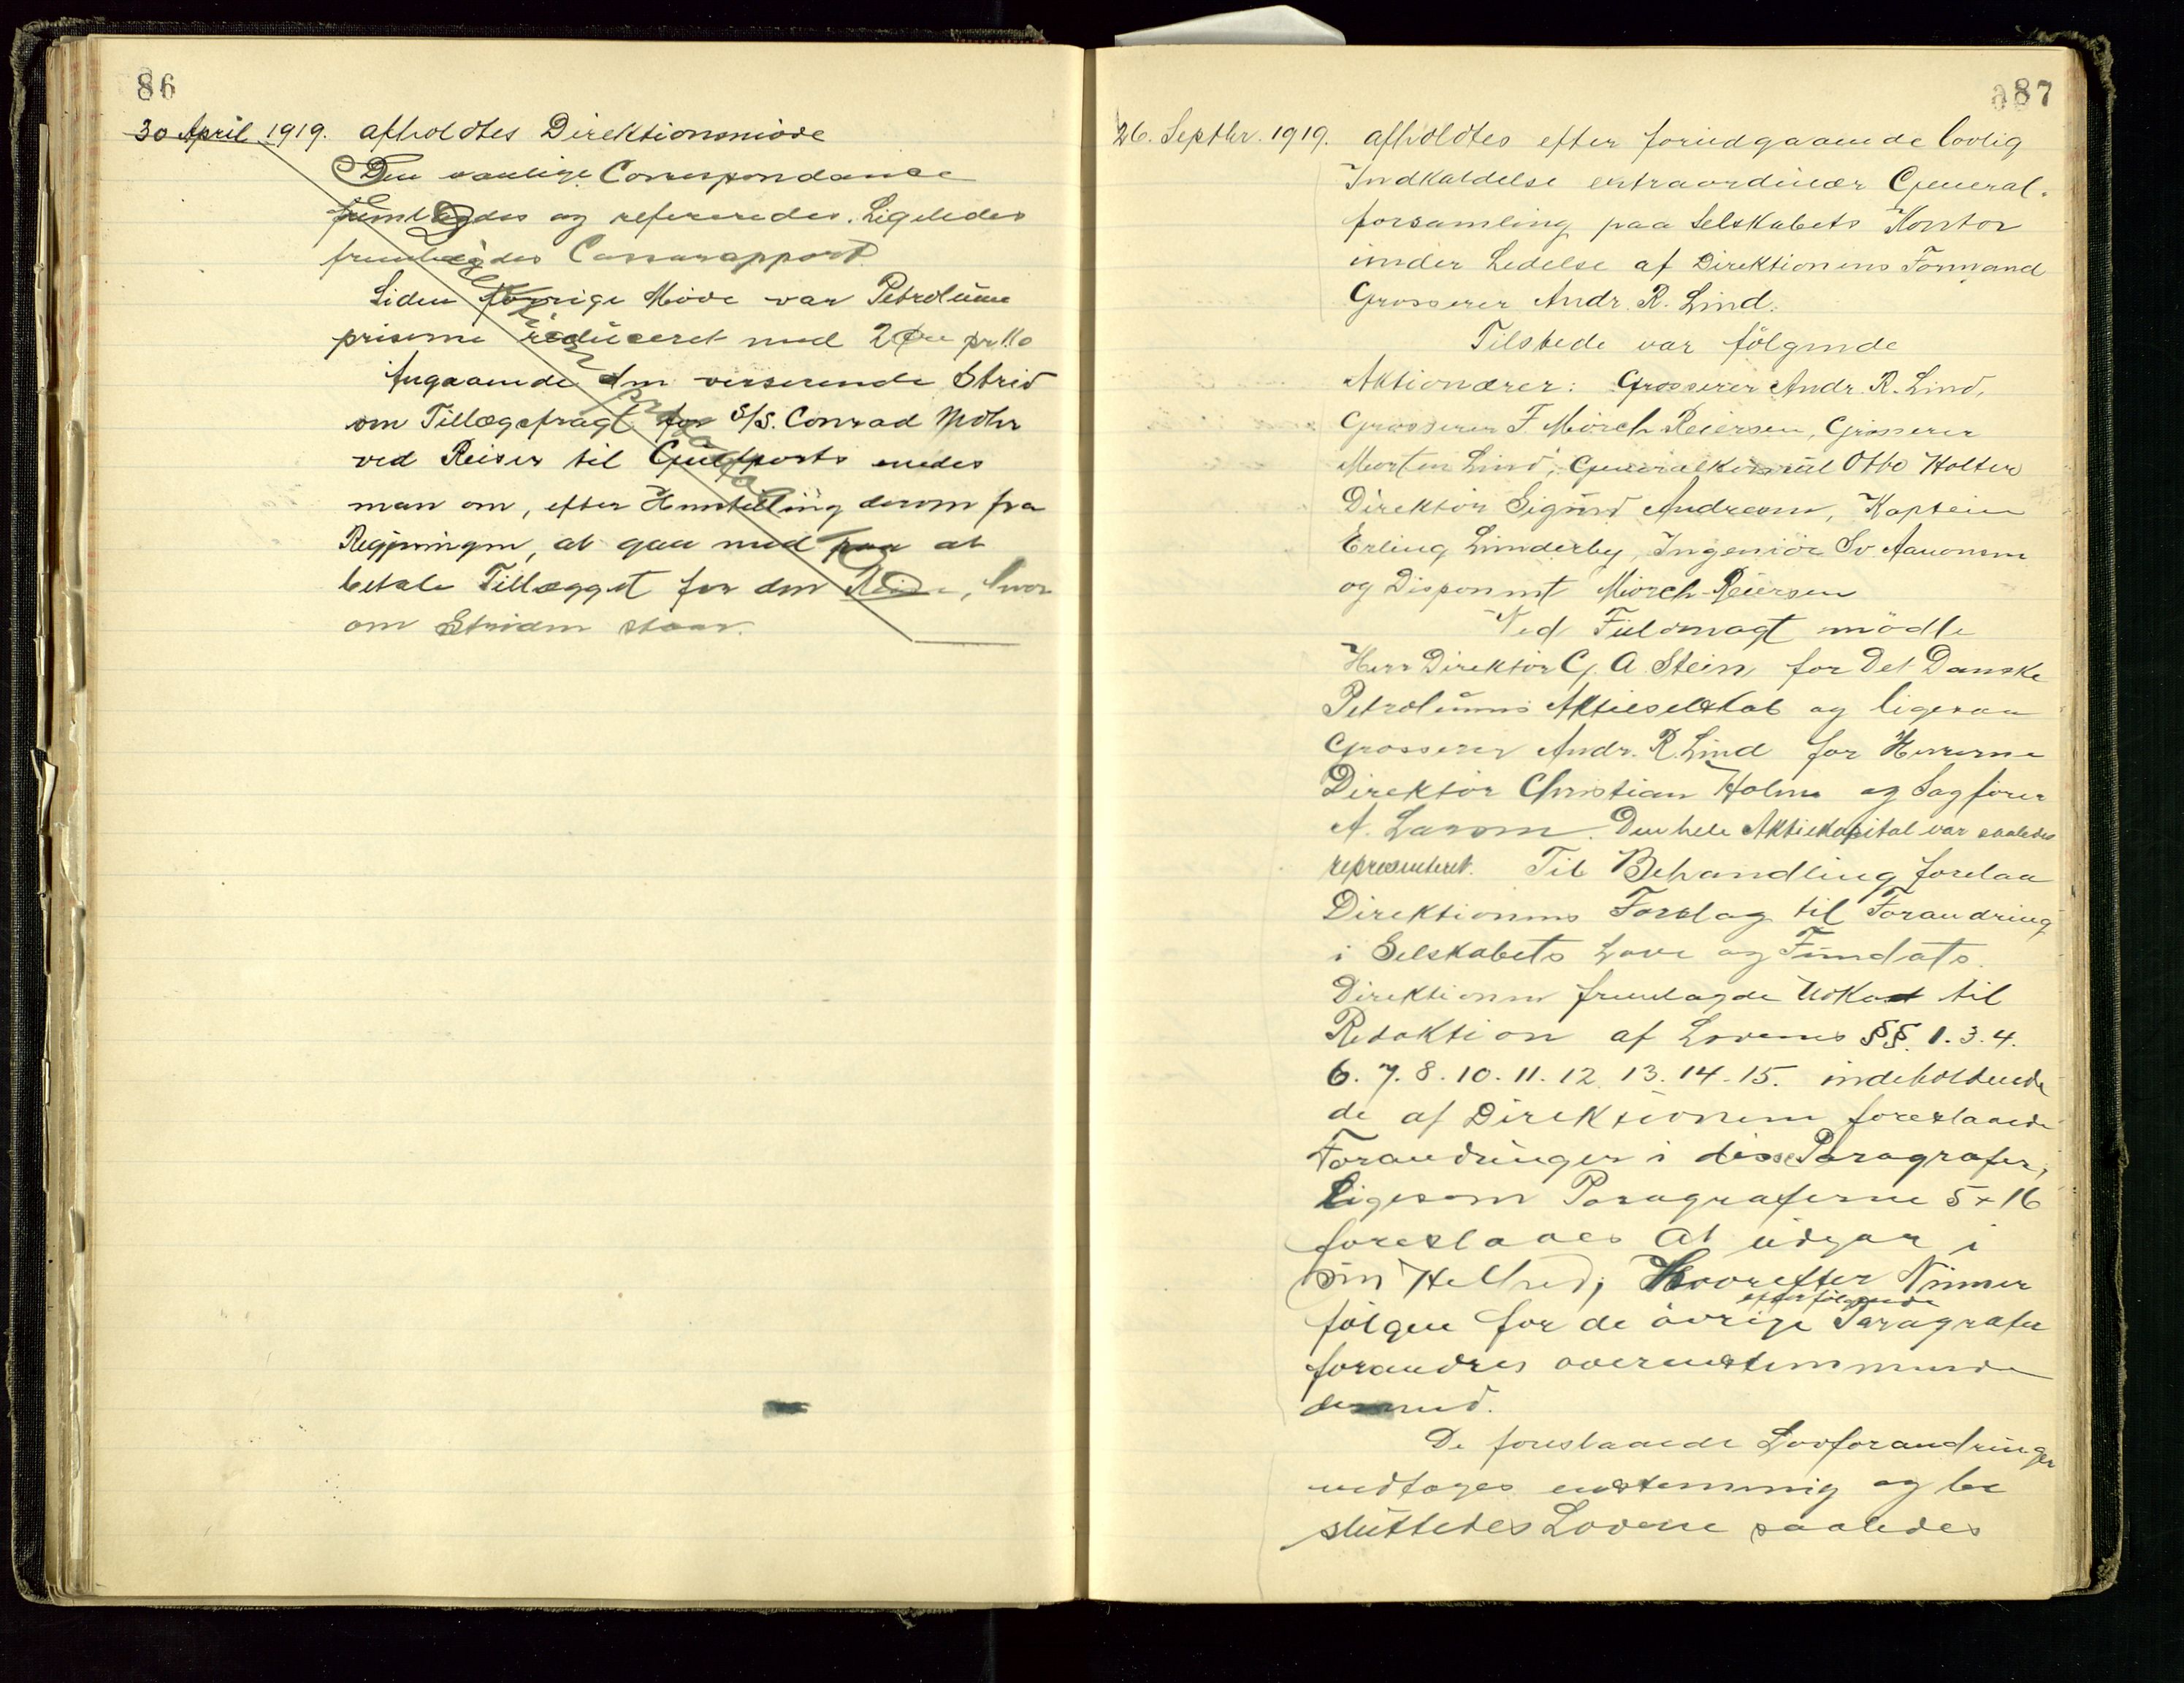 86
30 April 1919. afholdtes Direktionsmöde
Den vanlige Correspondance
fremlagdes og refereredes. Ligeledes
fremlagdes Cassarapport
Siden forrige Möde var Petroleums
priserne reduceret med 2 Øre pr Ko
Angaaende den verserende Strid
om Tillægsfragt for S/S. Conrad Mohr
ved Reiser til Gulfports enedes
man om, efter Henstilling derom fra
Regjeringen, at gaa med paa at
betale Tillægget for den Reise, hvor
om Striden staar.
87
26. Septbr. 1919. afholdtes efter forudgaaende lovlig
Indkaldelse extraordinær General-
forsamling paa Selskabets Kontor
under Ledelse af Direktionens Formand
Grosserer Andr. R. Lind.
Tilstede var fölgende
Aktionærer: Grosserer Andr. R. Lind,
Grosserer F. Mörch Reiersen, Grosserer
Morten Lind, Generalkonsul Otto Holter
Direktör Sigurd Andresen, Kaptein
Erling Linderby, Ingeniör Sv. Aanonsen
og Disponent Mörch-Reiersen
Ved Fuldmagt mödte
Herr Direktör C. A. Stein for Det Danske
Petroleums Aktieselskab og ligesaa
Grosserer Andr. R. Lind for Herrerne
Direktör Christian Holm og Sagförer
A. Larsen. Den hele Aktiekapital var saaledes
repræsenteret. Til Behandling forelaa
Direktionens Forslag til Forandring
i Selskabets Love og Fundats.
Direktionen fremlagde Udkast til
Redaktion af Lovenes §§. 1. 3. 4.
6. 7. 8. 10. 11. 12. 13. 14. 15. indeholdende
de af Direktionen foreslaaede
Forandringer i disse Paragrafer,
ligesom Paragraferne 5 + 16
foreslaaes at udgaa i
sin Helhed, Hvorefter Nummer
efterfölgende
fölgen for de övrige Paragrafer
forandres overenstemmende
dermed.
De foreslaaede Lovforandringer
vedtoges enstemmig og be
sluttedes Lovene saaledes